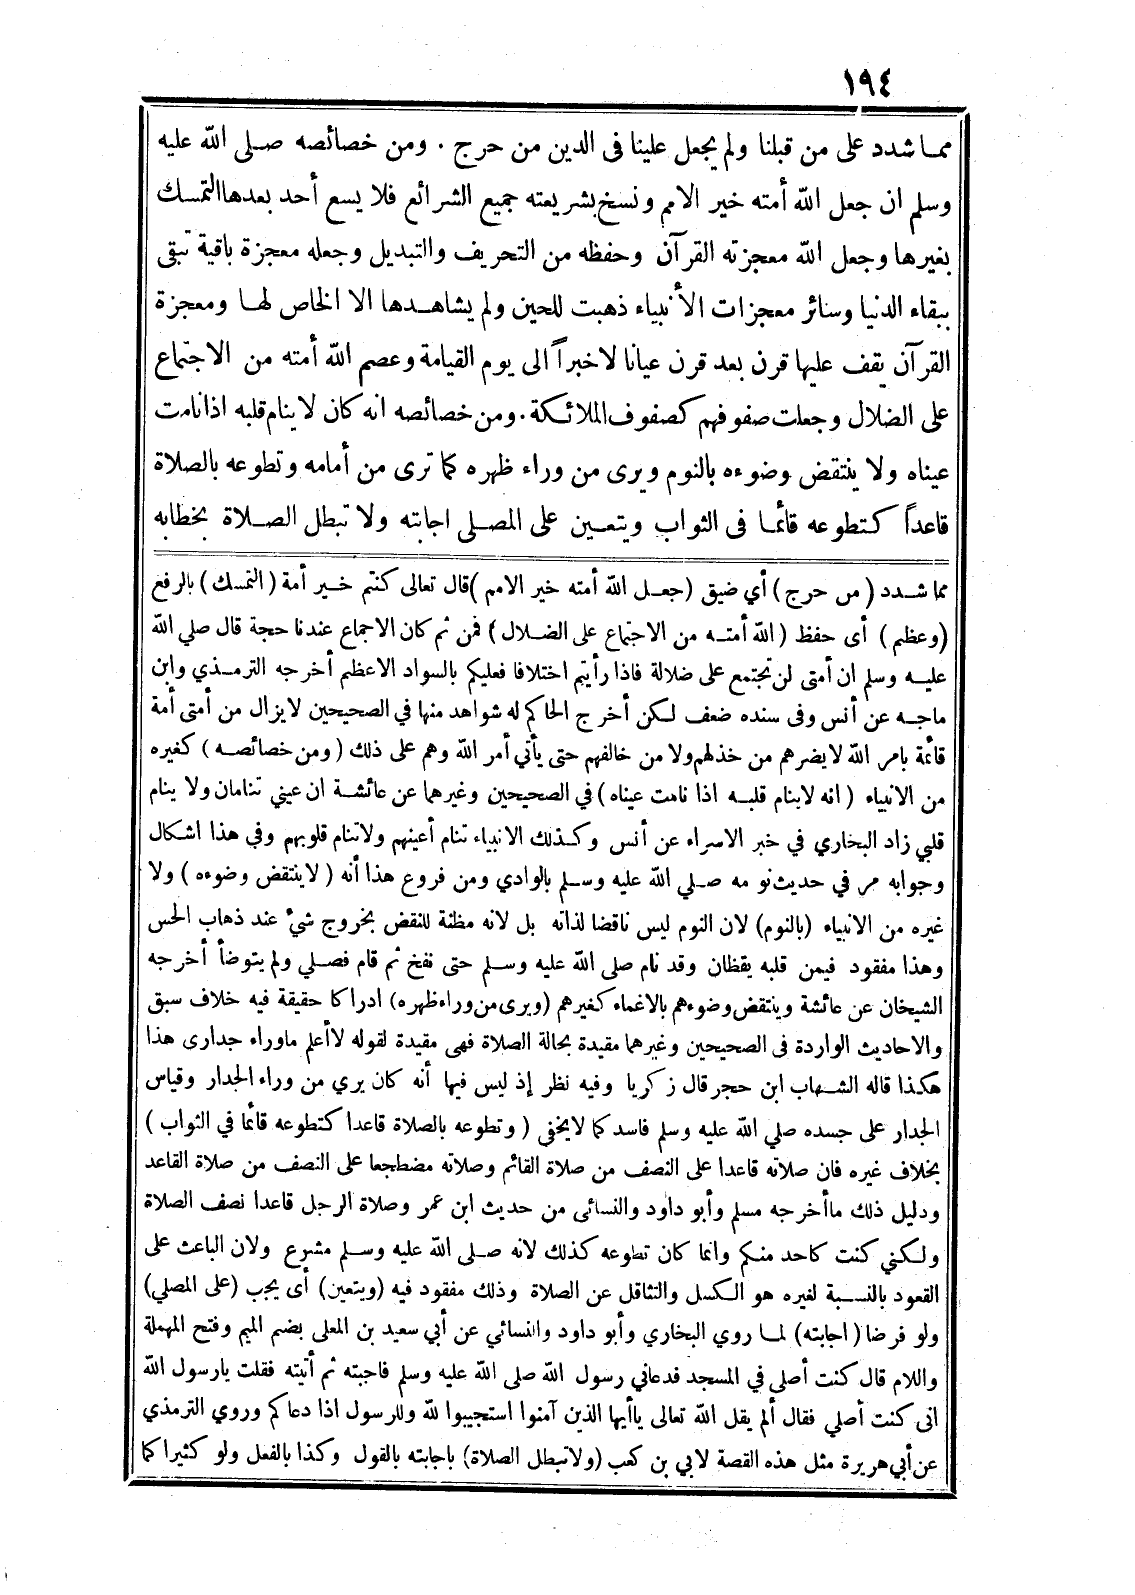 ١٩٤
مما شدد على من قبلنا ولم يجعل علينا فى الدين من حرج . ومن خصائصه صلى الله عليه
وسلم ان جعل الله أمته خير الامم ونسخ بشريعته جميع الشرائع فلا يسع أحد بعدها التمسك
بغيرها وجعل الله معجزته القرآن وحفظه من التحريف والتبديل وجعله معجزة باقية تبقى
ببقاء الدنيا وسائر معجزات الأنبياء ذهبت للحين ولم يشاهدها الا الخاص لها ومعجزة
القرآن يقف عليها قرن بعد قرن عيانا لا خبراً الى يوم القيامة وعصم الله أمته من الاجتماع
على الضلال وجعلت صفوفهم كصفوف الملائكة . ومن خصائصه انه كان لا ينام قلبه اذا نامت
عيناه ولا ينتقض وضوءه بالنوم ويرى من وراء ظهره كما ترى من أمامه وتطوعه بالصلاة
قاعداً كتطوعه قائما فى الثواب ويتعين على المصلى اجابته ولا تبطل الصلاة بخطابه
مما شدد (من حرج) أي ضيق (جعل الله أمته خير الامم) قال تعالى كنتم خير أمة (التمسك) بالرفع
(وعظم) أى حفظ (الله أمته من الاجتماع على الضلال) فمن ثم كان الاجماع عندنا حجة قال صلي الله
عليه وسلم ان أمتى لن تجتمع على ضلالة فاذا رأيتم اختلافا فعليكم بالسواد الاعظم أخرجه الترمذي وابن
ماجه عن أنس وفى سنده ضعف لكن أخرج الحاكم له شواهد منها في الصحيحين لا يزال من أمتى أمة
قائمة بامر الله لا يضرهم من خذلهم ولا من خالفهم حتى يأتي أمر الله وهم على ذلك (ومن خصائصه) كغيره
من الانبياء (انه لا ينام قلبه اذا نامت عيناه) في الصحيحين وغيرهما عن عائشة ان عيني تنامان ولا ينام
قلبي زاد البخاري في خبر الاسراء عن أنس وكذلك الانبياء تنام أعينهم ولا تنام قلوبهم وفي هذا اشكال
وجوابه مر في حديث نومه صلي الله عليه وسلم بالوادي ومن فروع هذا أنه (لا ينتقض وضوءه) ولا
غيره من الانبياء (بالنوم) لان النوم ليس ناقضا لذاته بل لانه مظنة للنقض بخروج شئ عند ذهاب الحس
وهذا مفقود فيمن قلبه يقظان وقد نام صلى الله عليه وسلم حتى نفخ ثم قام فصلي ولم يتوضأ أخرجه
الشيخان عن عائشة وينتقض وضوءهم بالاغماء كغيرهم (ويرى من وراء ظهره) ادراكا حقيقة فيه خلاف سبق
والاحاديث الواردة فى الصحيحين وغيرهما مقيدة بحالة الصلاة فهى مقيدة لقوله لا أعلم ماوراء جدارى هذا
هكذا قاله الشهاب ابن حجر قال زكريا وفيه نظر إذ ليس فيها أنه كان يري من وراء الجدار وقياس
الجدار على جسده صلي الله عليه وسلم فاسد كما لا يخفى (وتطوعه بالصلاة قاعدا كتطوعه قائما في الثواب)
بخلاف غيره فان صلاته قاعدا على النصف من صلاة القائم وصلاته مضطجعا على النصف من صلاة القاعد
ودليل ذلك ما أخرجه مسلم وأبو داود والنسائى من حديث ابن عمر وصلاة الرجل قاعدا نصف الصلاة
ولكني كنت كاحد منكم وانما كان تطوعه كذلك لانه صلى الله عليه وسلم مشرع ولان الباعث على
القعود بالنسبة لغيره هو الكسل والتثاقل عن الصلاة وذلك مفقود فيه (ويتعين) أى يجب (على المصلي)
ولو فرضا (اجابته) لما روي البخاري وأبو داود والنسائي عن أبي سعيد بن المعلى بضم الميم وفتح المهملة
واللام قال كنت أصلي في المسجد فدعاني رسول الله صلى الله عليه وسلم فاجبته ثم أتيته فقلت يارسول الله
انى كنت أصلي فقال ألم يقل الله تعالى ياأيها الذين آمنوا استجيبوا لله وللرسول اذا دعاكم وروي الترمذي
عن أبي هريرة مثل هذه القصة لابي بن كعب (ولا تبطل الصلاة) باجابته بالقول وكذا بالفعل ولو كثيرا كما